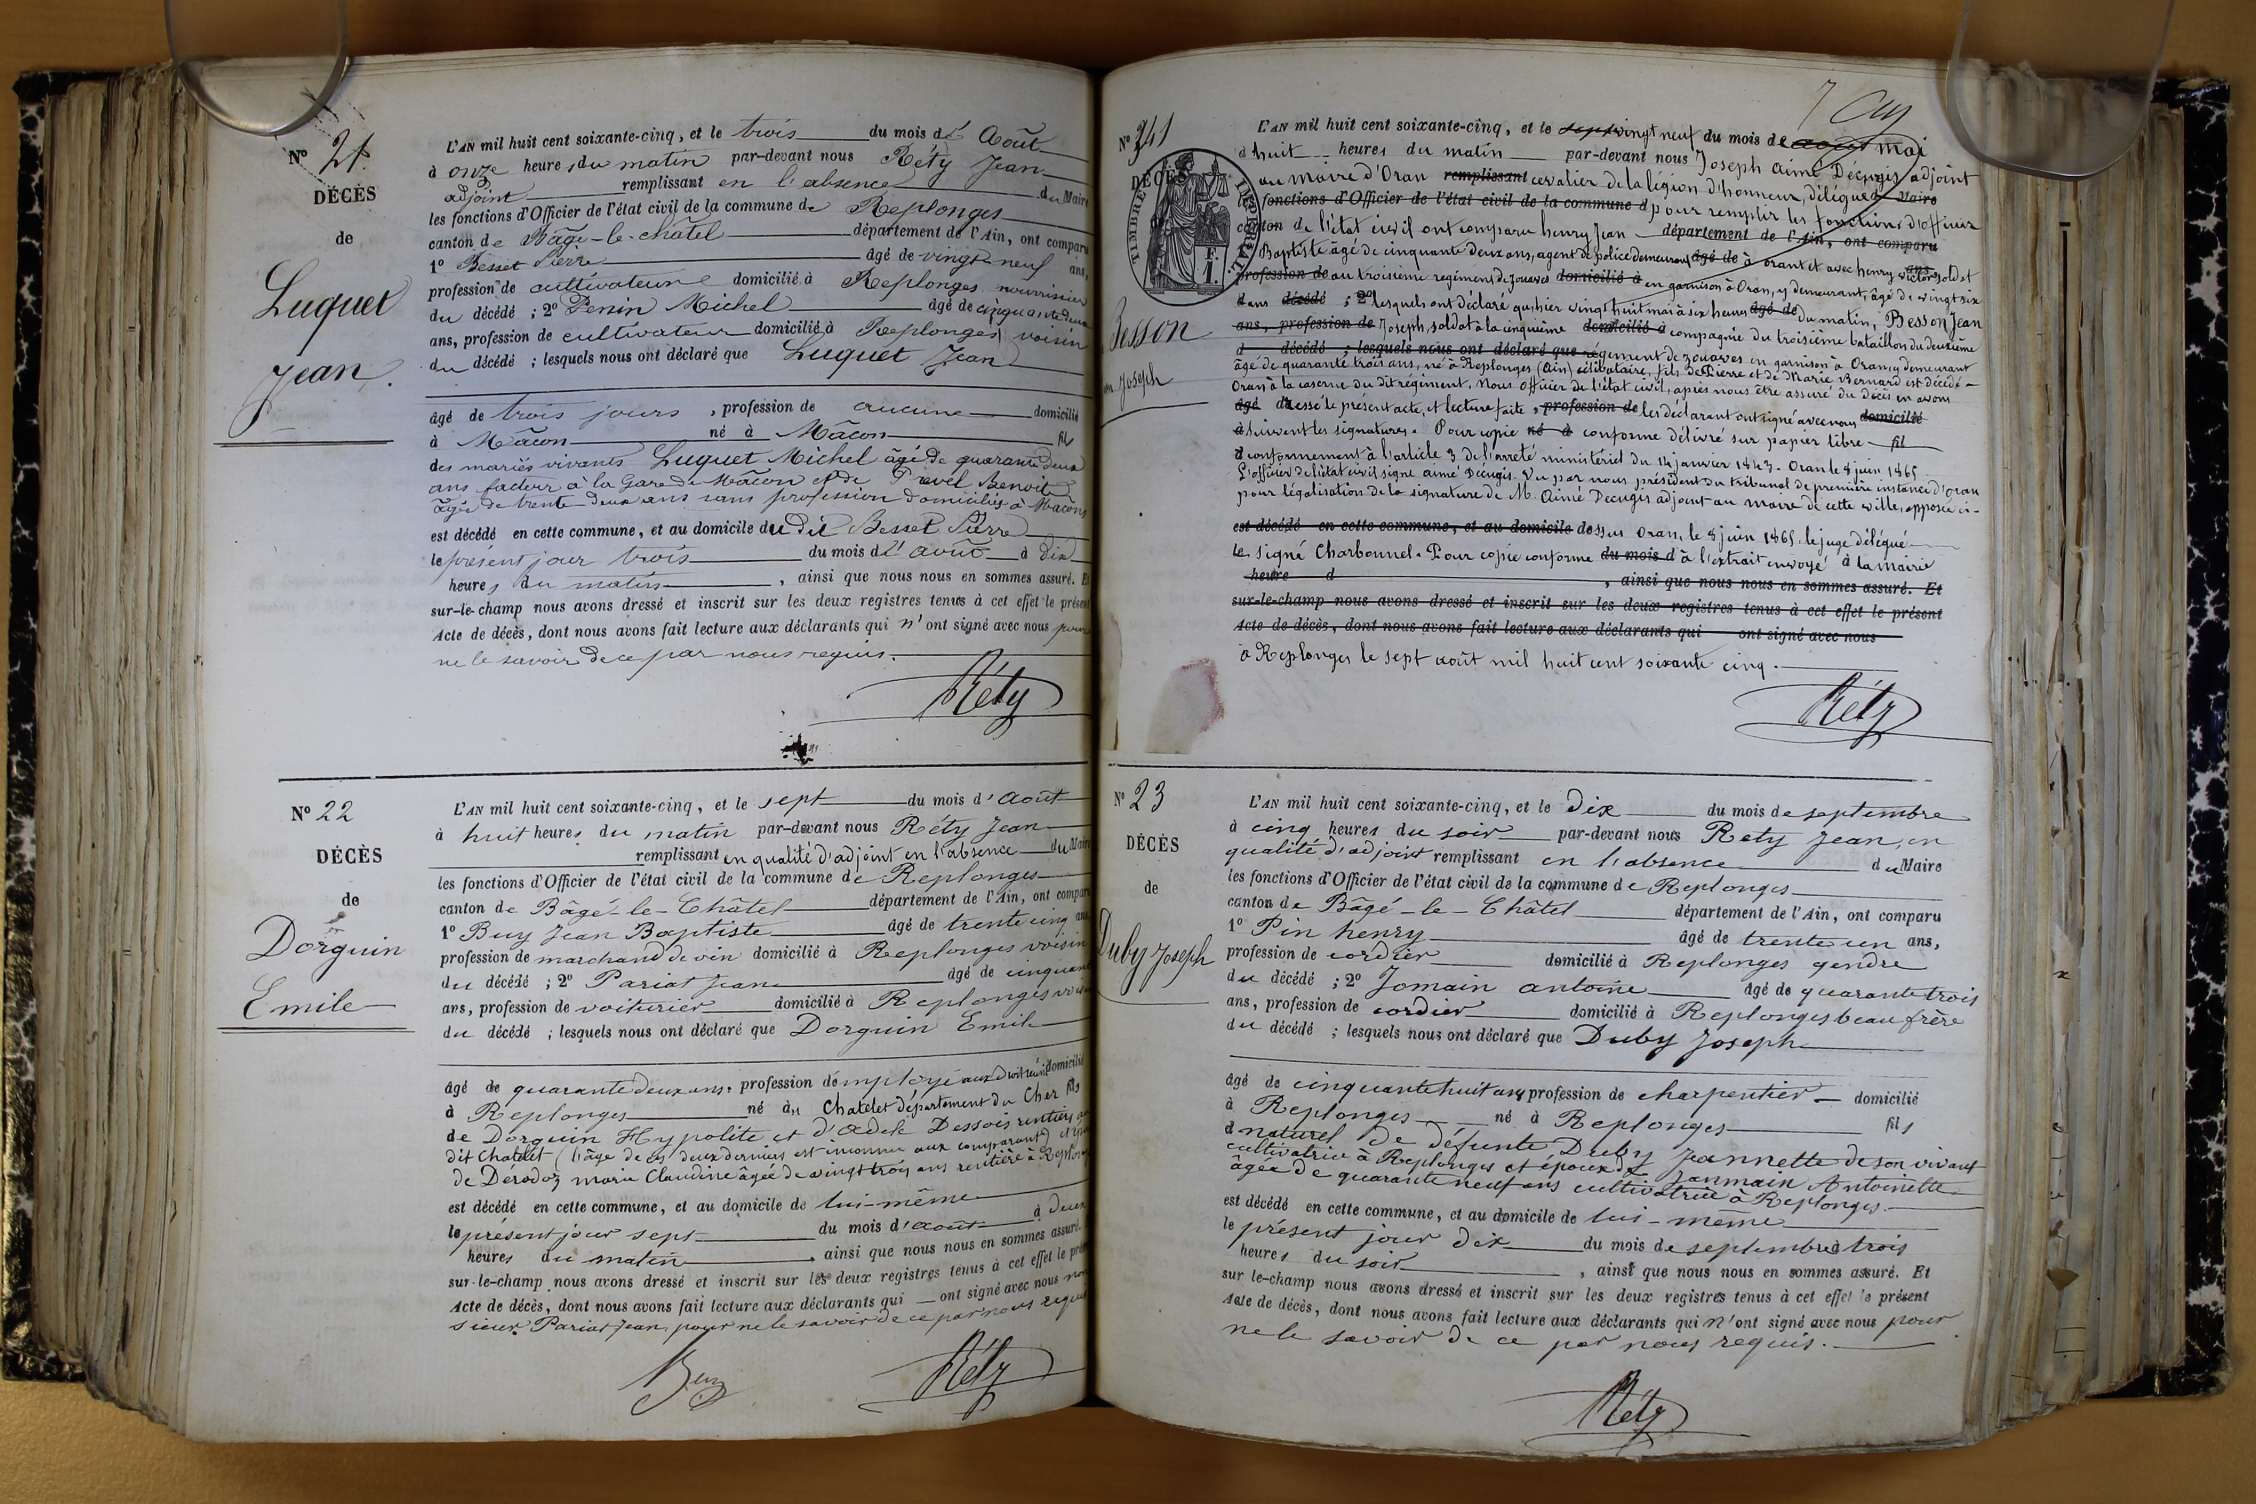 Nº 21
DÉCÈS
de
Luquet
Jean.
L'AN mil huit cent soixante-cinq, et le trois du mois d' Août
à onze heures du matin par-devant nous Réty Jean
adjoint remplissant en l'absence du Maire
les fonctions d'Officier de l'état civil de la commune de Replonges
canton de Bâgé-le-châtel département de l'Ain, ont comparu
1º Besset Pierre âgé de vingt-neuf ans,
profession de cultivateur domicilié à Replonges nourrisier
du décédé ; 2º Penin Michel âgé de cinquante deux
ans, profession de cultivateur domicilié à Replonges voisin
du décédé ; lesquels nous ont déclaré que Luquet Jean
âgé de trois jours , profession de aucune domicilié
à Mâcon né à Mâcon fils
des mariés vivants Luquet Michel âgé de quarante deux
ans facteur à la Gare de Mâcon et de Benoite
âgée de trente deux ans sans profession domiciliés à Mâcon
est décédé en cette commune, et au domicile du dit Besset Pierre
le présent jour trois du mois d' août à dix
heures du matin , ainsi que nous nous en sommes assuré. Et
sur-le-champ nous avons dressé et inscrit sur les deux registres tenus à cet effet le présent
Acte de décès, dont nous avons fait lecture aux déclarants qui n' ont signé avec nous pour
ne le savoir de ce par nous requis.
Réty
Nº 22
DÉCÈS
de
Dorguin
Emile
L'AN mil huit cent soixante-cinq, et le sept du mois d'août
à huit heures du matin par-devant nous Réty Jean
remplissant en qualité d'adjoint en l'absence du Maire
les fonctions d'Officier de l'état civil de la commune de Replonges
canton de Bâgé-le-Châtel département de l'Ain, ont comparu
1º Buy Jean Baptiste âgé de trente cinq ans
profession de marchand de vin domicilié à Replonges voisin
du décédé ; 2º Pariat Jean âgé de cinquante
ans, profession de voiturier domicilié à Replonges voisin
du décédé ; lesquels nous ont déclaré que Dorguin Emile
âgé de quarante deux ans, profession d'employé aux droits réunis domicilié
à Replonges né au Chatelet département du Cher fils
de Dorguin Hypolite et d'Adele Dessois rentiers au
dit Chatelet (l'âge de ces deux derniers est inconnu aux comparant) et époux
de Dérodoz marie Claudine âgée de vingt trois ans rentière à Replonges
est décédé en cette commune, et au domicile de lui-même
le présent jour sept du mois d'août à deux
heures du matin , ainsi que nous nous en sommes assuré.
sur-le-champ nous avons dressé et inscrit sur les deux registres tenus à cet effet le présent
Acte de décès, dont nous avons fait lecture aux déclarants qui ont signé avec nous non
sieur Pariat Jean, pour ne le savoir de ce par nous requis
Buy Réty
7 août
Nº 241
DÉCÈS
TIMBRE IMPÉRIAL
F. 1.
Besson
Joseph
L'AN mil huit cent soixante-cinq, et le sept vingt neuf du mois de août mai
à huit heures du matin par-devant nous Joseph Aimé Décugis adjoint
au maire d'Oran remplissant cevalier de la légion d'honneur, délégué d Maire
les fonctions d'Officier de l'état civil de la commune d pour remplir les fonctions d'officier
canton de l'état civil ont comparu henry Jean département de l'Ain, ont comparu
Baptiste âgé de cinquante deux ans, agent de police demeurant âgé de à orant et avec henry victor soldat ans
profession de au troisième regiment de zouaves domicilié à en garnison à Oran, y demeurant, âgé de vingt six
d ans décédé ; 2º lesquels ont déclaré qu'hier vingt huit mai à six heures âgé de du matin, Besson Jean
ans, profession de Joseph, soldat à la cinquième domicilié à compagnie du troisième bataillon du deuxième
d décédé ; lesquels nous ont déclaré que régiment de zouaves en garnison à Oran, y demeurant
âgé de quarante trois ans, né à Replonges (Ain) célibataire, fils de Pierre et de Marie Bernard est décédé
Oran à la caserne du dit régiment. Nous officier de l'état civil, après nous être assuré du décès en avons
âgé dressé le présent acte, et lecture faite, profession de les déclarant ont signé avec nous domicilié
à Suivent les signatures. Pour copie né à conforme délivré sur papier libre fil
d conformement à l'article 3 de l'arreté ministériel du 14 janvier 1843. Oran le 8 juin 1865
L'officier de l'état civil signé aimé Décugis. Vu par nous président du tribunal de première instance d'oran
pour légalisation de la signature de M. Aimé Decugis adjoint au maire de cette ville, apposée ci-
est décédé en cette commune, et au domicile de dessus Oran, le 8 juin 1865. le juge délégué
le signé Charbonnel. Pour copie conforme du mois d à l'extrait envoyé à la mairie
heure d , ainsi que nous nous en sommes assuré. Et
sur-le-champ nous avons dressé et inscrit sur les deux registres tenus à cet effet le présent
Acte de décès, dont nous avons fait lecture aux déclarants qui ont signé avec nous
à Replonges le sept août mil huit cent soixante cinq.
Réty
Nº 23
DÉCÈS
de
Duby Joseph
L'AN mil huit cent soixante-cinq, et le dix du mois de septembre
à cinq heures du soir par-devant nous Rety Jean, en
qualité d'adjoint remplissant en l'absence du Maire
les fonctions d'Officier de l'état civil de la commune de Replonges
canton de Bâgé-le-Châtel département de l'Ain, ont comparu
1º Pin henry âgé de trente un ans,
profession de cordier domicilié à Replonges gendre
du décédé ; 2º Jomain antoine âgé de quarante trois
ans, profession de cordier domicilié à Replonges beau frère
du décédé ; lesquels nous ont déclaré que Duby Joseph
âgé de cinquante huit ans profession de charpentier domicilié
à Replonges né à Replonges fils
d naturel de défunte Duby Jeannette de son vivant
cultivatrice à Replonges et époux de Janmain Antoinette
âgée de quarante neuf ans cultivatrice à Replonges.
est décédé en cette commune, et au domicile de lui-même
le présent jour dix du mois de septembre à trois
heures du soir , ainsi que nous nous en sommes assuré. Et
sur le-champ nous avons dressé et inscrit sur les deux registres tenus à cet effet le présent
Acte de décès, dont nous avons fait lecture aux déclarants qui n'ont signé avec nous pour
ne le savoir de ce par nous requis.
Réty